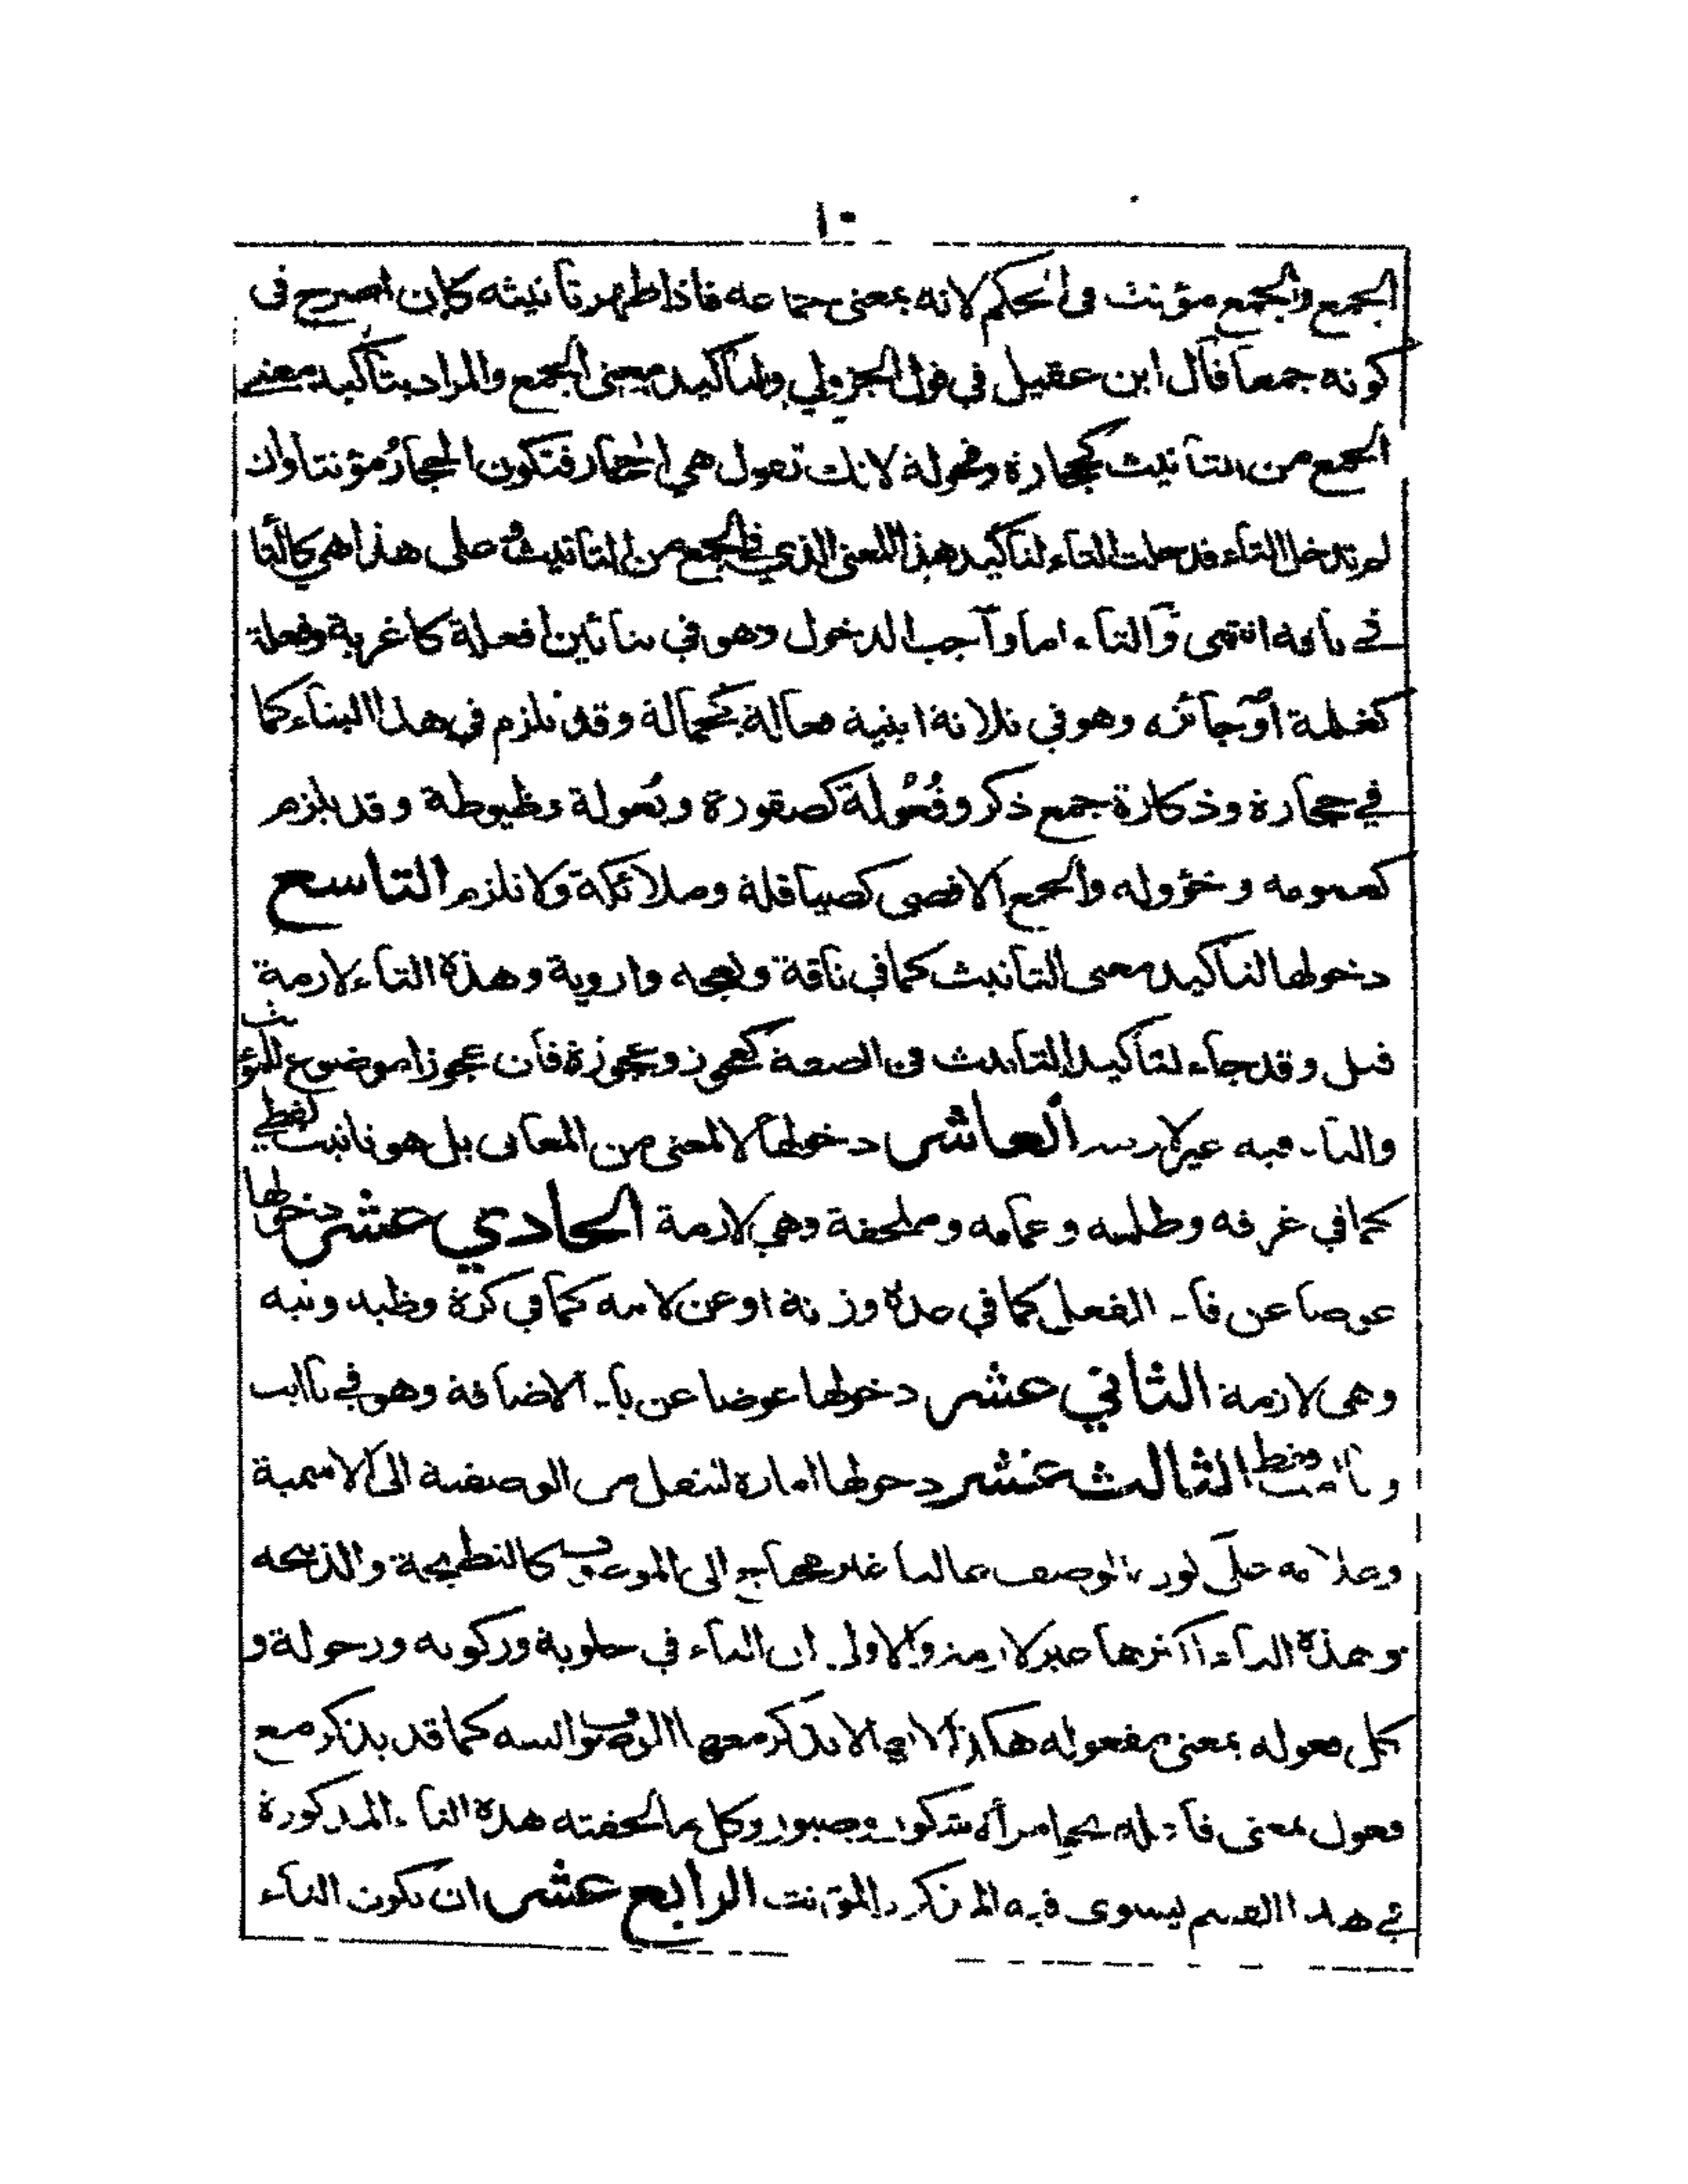 ١٠
الجمع والجمع مؤنث في الحكم لانه بمعنى جماعه فاذا ظهر تأنيثه كان اصرح في
كونه جمعا قال ابن عقيل في قول الجزولي ولتأكيد معنى الجمع والمراد بتأكيد معنى
الجمع من التأنيث كحجارة وفحولة لانك تقول هي الحجار فتكون الحجار مؤنثا وان
لم تدخل التاء فدخلت التاء لتأكيد هذا المعنى الذي في الجمع من التأنيث فعلى هذا هي كالتا
في ناقه انتهى والتاء اما واجب الدخول وهو في بنائين افعلة كاغربة وفعلة
كغلمة او جائزه وهو في ثلاثة ابنية فعالة كجمالة وقد تلزم في هذا البناء كما
في حجارة وذكارة جمع ذكر وفُعُولة كصقورة وبُعولة وظيوطة وقد يلزم
كعمومه وخؤوله والجمع الاقصى كصياقلة وملائكة ولا تلزم التاسع
دخولها لتأكيد معنى التأنيث كما في ناقة ونعجه واروية وهذه التاء لازمة
قيل وقد جاء لتأكيد التأنيث في الصفة كعجوز وعجوزة فان عجوزا موضوع للمؤنث
والتاء فيه غير لازمه العاشر دخولها لا لمعنى من المعاني بل هو تأنيث لفظي
كما في غرفه وظلمه وعمامه وملحفة وهي لازمة الحادي عشر دخولها
عوضا عن فاء الفعل كما في عدة وزنة او عن لامه كما في كرة وظبه وثبه
وهي لازمة الثاني عشر دخولها عوضا عن ياء الاضافة وهو في ياابت
وياامت فقط الثالث عشر دخولها امارة لنقل من الوصفية الى الاسمية
وعلامه على كون الوصف غالبا غير محتاج الى الموصوف كالنطيحة والذبيحه
وهذة التاء اكثرها غير لازمة والاولى ان التاء في حلوبة وركوبه ورحولة و
كل فعوله بمعنى مفعوله هكذا لانها لا يذكر معها الموصوف البته كما قد يذكر مع
فعول بمعنى فاعله نحو امرأة شكور وصبور وكل ما لحقته هذة التاء المذكورة
في هذا القسم يستوى فيه المذكر والمؤنث الرابع عشر ان تكون التاء